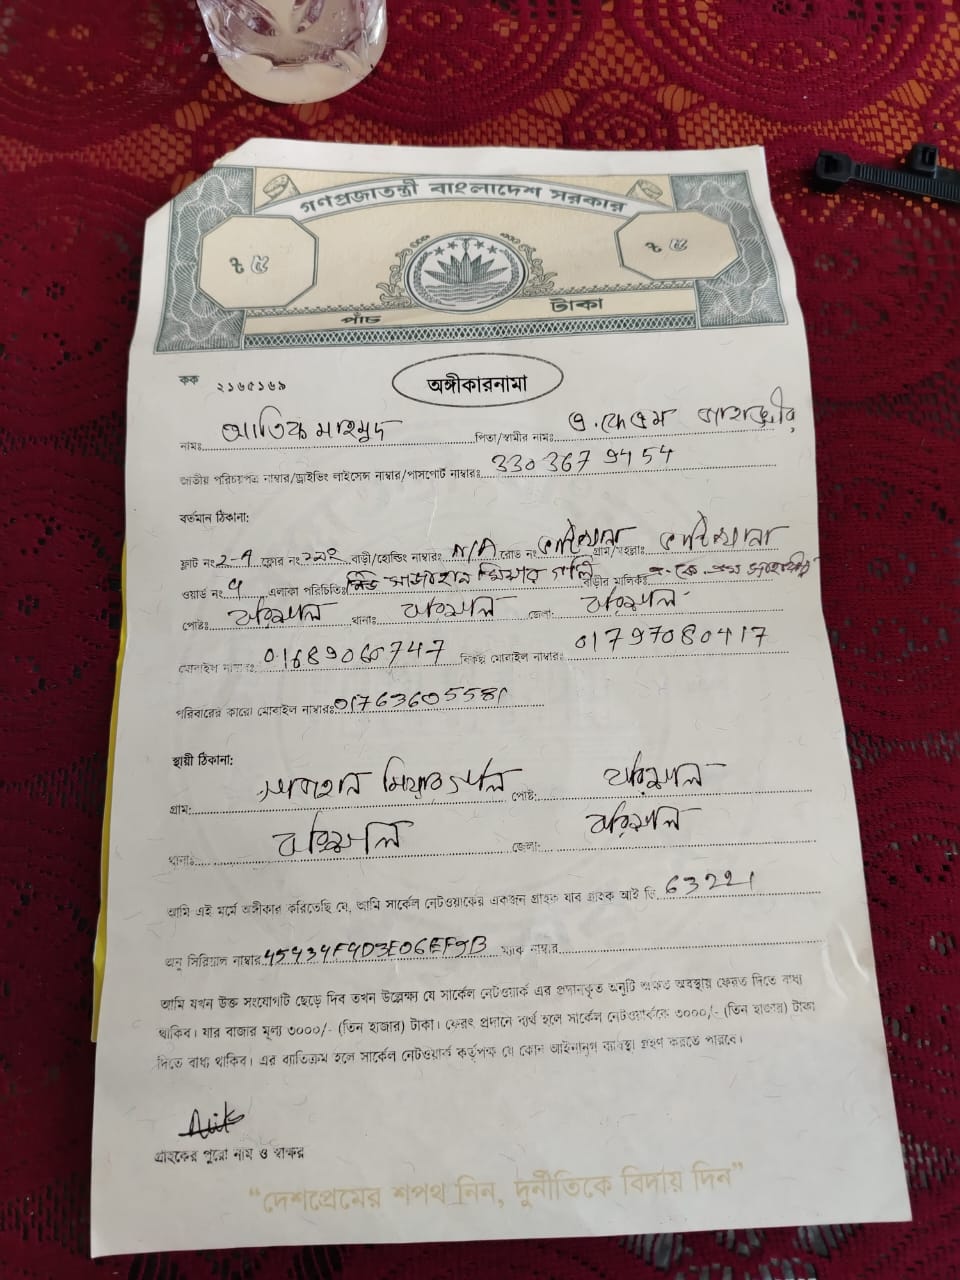 গণপ্রজাতন্ত্রী বাংলাদেশ সরকার
৳ ৫ ৳ ৫
পাঁচ টাকা
কক ২১৬৫১৬৯
অঙ্গীকারনামা
নামঃ আতিক মাহমুদ পিতা/স্বামীর নামঃ এ.কে এম জাহাঙ্গীর
জাতীয় পরিচয়পত্র নাম্বার/ড্রাইভিং লাইসেন্স নাম্বার/পাসপোর্ট নাম্বারঃ 330 367 9454
বর্তমান ঠিকানা:
ফ্লাট নং ফ্লোর নং বাড়ী/হোল্ডিং নাম্বারঃ N/A রোড নং গ্রাম/মহল্লাঃ
ওয়ার্ড নং এলাকা পরিচিতিঃ মিয়ার গলি বাড়ীর মালিকঃ এ. কে. এম জাহাঙ্গীর
পোষ্টঃ বরিশাল থানাঃ বরিশাল জেলাঃ বরিশাল
মোবাইল নাম্বারঃ বিকল্প মোবাইল নাম্বারঃ 01797080417
পরিবারের কারো মোবাইল নাম্বারঃ 01763605581
স্থায়ী ঠিকানা:
গ্রাম: মিয়ার গলি পোষ্ট: বরিশাল
থানাঃ বরিশাল জেলা: বরিশাল
আমি এই মর্মে অঙ্গীকার করিতেছি যে, আমি সার্কেল নেটওয়ার্কের একজন গ্রাহক যার গ্রাহক আই ডি 63221
অনু সিরিয়াল নাম্বার ম্যাক নাম্বার
আমি যখন উক্ত সংযোগটি ছেড়ে দিব তখন উল্লেক্ষ্য যে সার্কেল নেটওয়ার্ক এর প্রদানকৃত অনুটি অক্ষত অবস্থায় ফেরত দিতে বাধ্য
থাকিব। যার বাজার মূল্য ৩০০০/- (তিন হাজার) টাকা। ফেরৎ প্রদানে ব্যর্থ হলে সার্কেল নেটওয়ার্ককে ৩০০০/- (তিন হাজার) টাকা
দিতে বাধ্য থাকিব। এর ব্যাতিক্রম হলে সার্কেল নেটওয়ার্ক কর্তৃপক্ষ যে কোন আইনানুগ ব্যবস্থা গ্রহণ করতে পারবে।
গ্রাহকের পুরো নাম ও স্বাক্ষর
“দেশপ্রেমের শপথ নিন, দুর্নীতিকে বিদায় দিন”